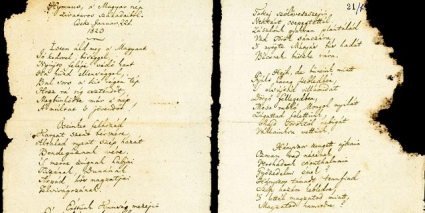 Hymnus, a' Magyar nép
zivataros századaiból.
Cseke, Januar. 22d.
1823
Isten áldd meg a' Magyart
Jó kedvvel, bőséggel,
Nyújts feléje védő kart
Ha küzd ellenséggel,
Bal sors a' kit régen tép
Hozz rá víg esztendőt,
Megbűnhődte már e' nép
A' multat 's jövendőt.
Őseinket felhozád
Kárpát szent bérczére,
Általad nyert szép hazát
Bendegúznak vére.
'S merre zúgnak habjai
Tiszának, Dunának,
Árpád hős magzatjai
Felvirágozának.
Értünk Kunság mezején
21/
Tokaj szőlővesszein
Nektárt csepegtettél.
Zászlónk gyakran plántálád
Vad Török sánczára,
'S nyögte Mátyás bús hadát
Bécsnek büszke vára.
Hajh, de bűneink miatt
Gyúlt harag kebledben,
'S elsújtád villámidat
Dörgő fellegedben,
Most rabló Mongol nyilát
Zúgattad felettünk,
Majd töröktől rabigát
Vállainkra vettünk.
Hányszor zengett ajkain
Ozmán vad népének
Vert hadunk csonthalmain
Győzedelmi ének!
Hányszor támadt tenfiad
Szép hazám kebledre,
'S lettél magzatod miatt
Magzatod hamvedre.